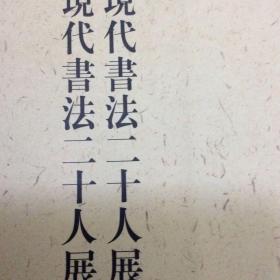 現代書法二十人展
現代書法二十人展